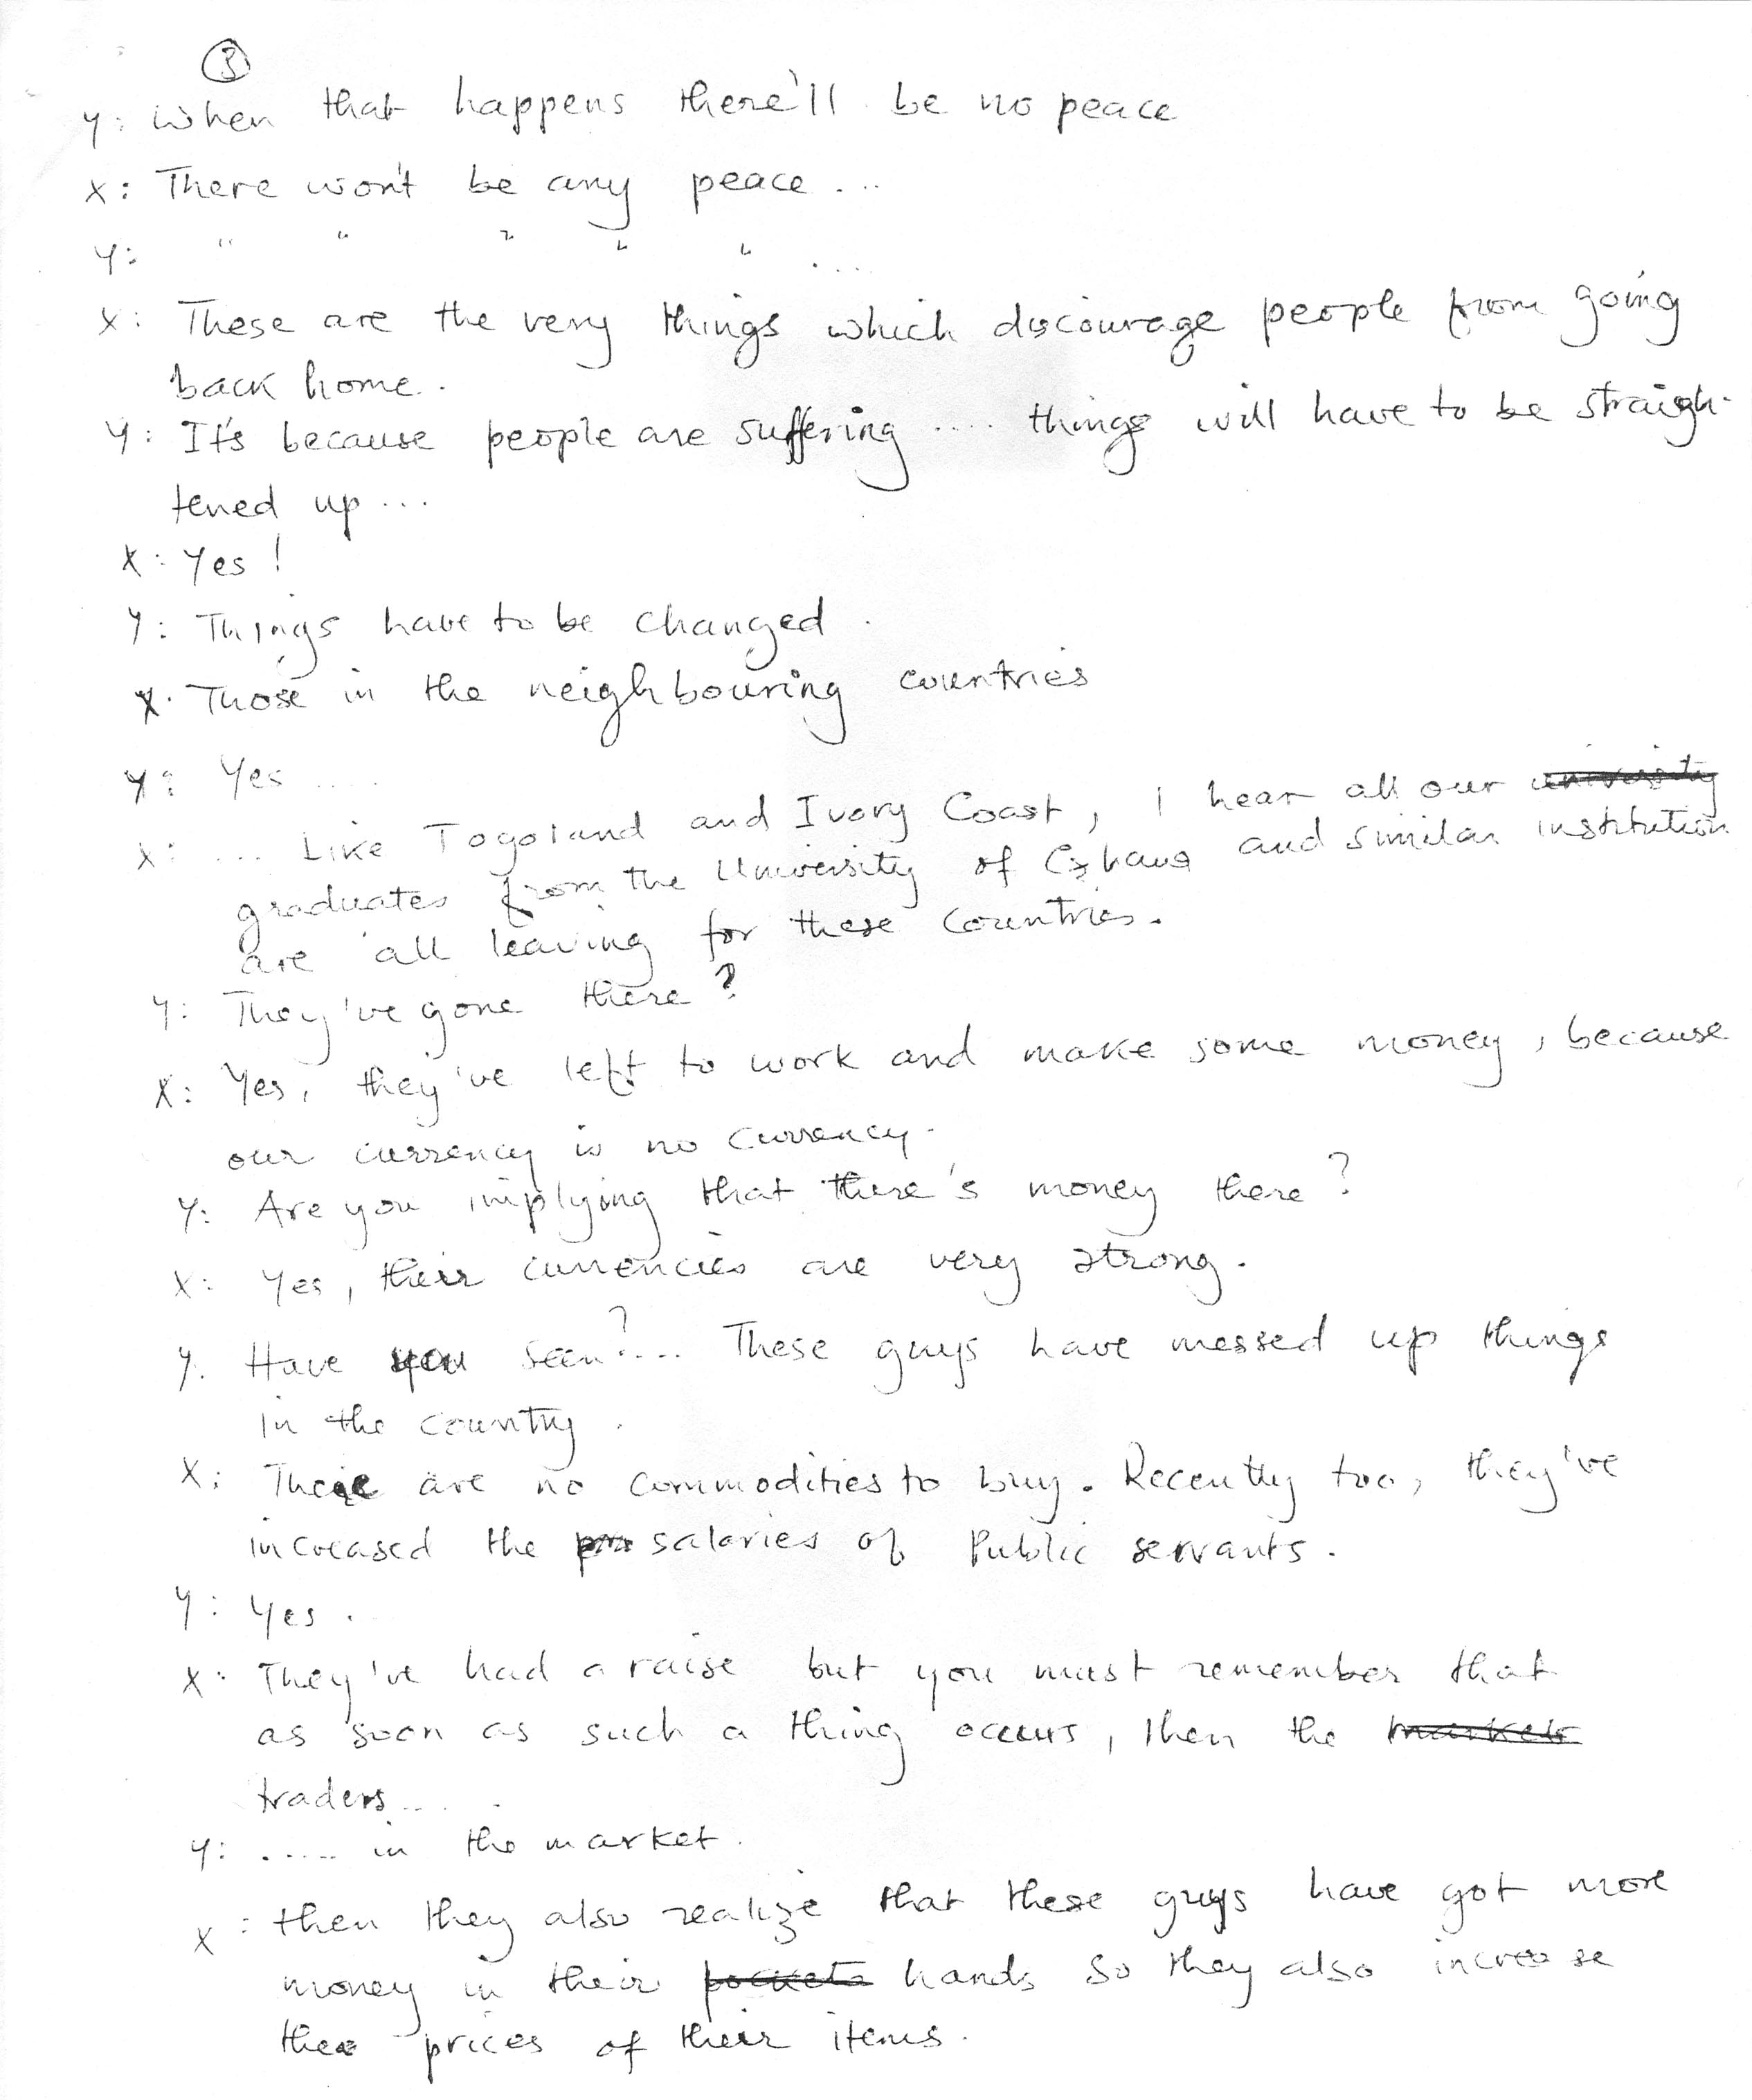 3
Y: When that happens there'll be no peace
X: There won't be any peace ...
Y: " " " " " ....
X: These are the very things which discourage people from going
back home.
Y: It's because people are suffering .... things will have to be straigh-
tened up ...
X: Yes!
Y: Things have to be changed.
X. Those in the neighbouring countries
Y: Yes ....
X: ... Like Togoland and Ivory Coast, I hear all our university
graduates from the University of Ghana and similar institution
are all leaving for these countries.
Y: They've gone there?
X: Yes, they've left to work and make some money, because
our currency is no currency.
Y: Are you implying that there's money there?
X: Yes, their currencies are very strong.
Y. Have you seen? .... These guys have messed up things
in the country.
X: There are no commodities to buy. Recently too, they've
increased the salaries of Public servants.
Y: Yes.
X: They've had a raise but you must remember that
as soon as such a thing occurs, then the markets
traders ....
Y: ..... in the market.
X: then they also realize that these guys have got more
money in their pockets hands so they also increase
the prices of their items.